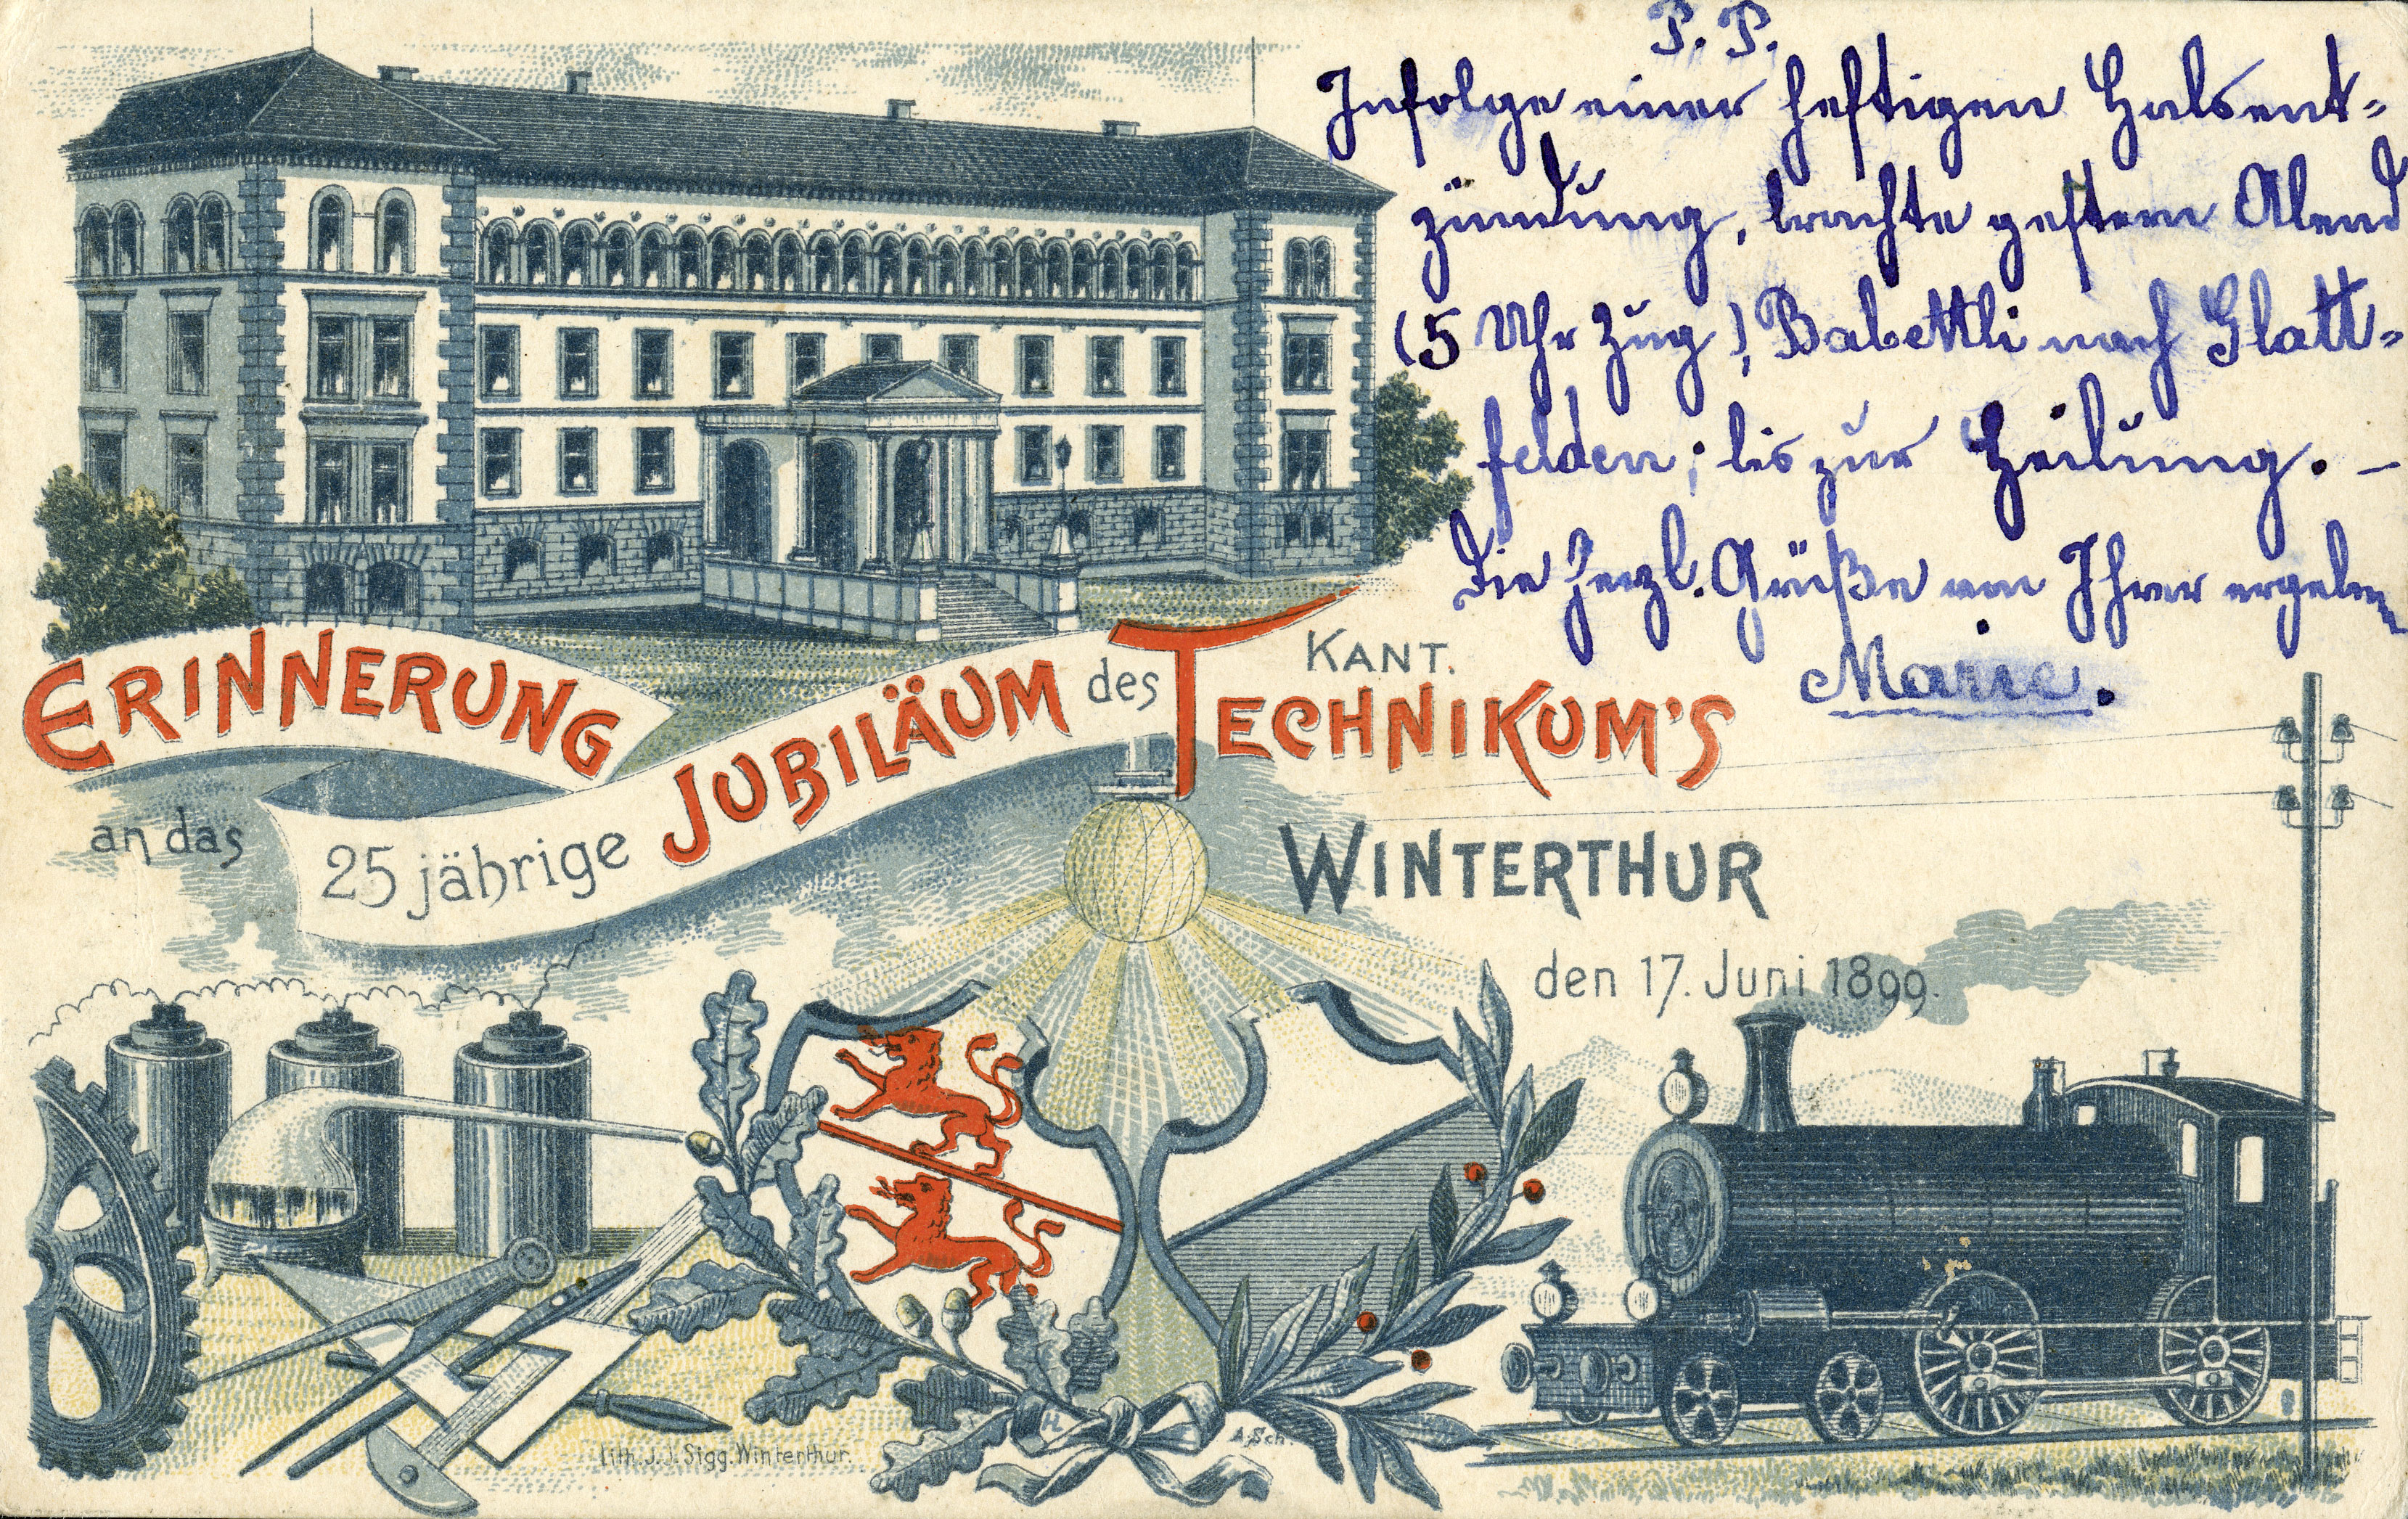 P. P.
Infolge einer heftigen Halsent-
zündung, brachte gestern Abend
(5 Uhr Zug), Babettli nach Glatt-
felden; bis zur Heilung. –
Die herzl. Grüße von Ihrer ergebenen
Marie.
ERINNERUNG
an das
25 jährige JUBILÄUM des KANT.
TECHNIKUM'S
WINTERTHUR
den 17. Juni 1899.
Lith. J. J. Sigg. Winterthur.
A. Sch.